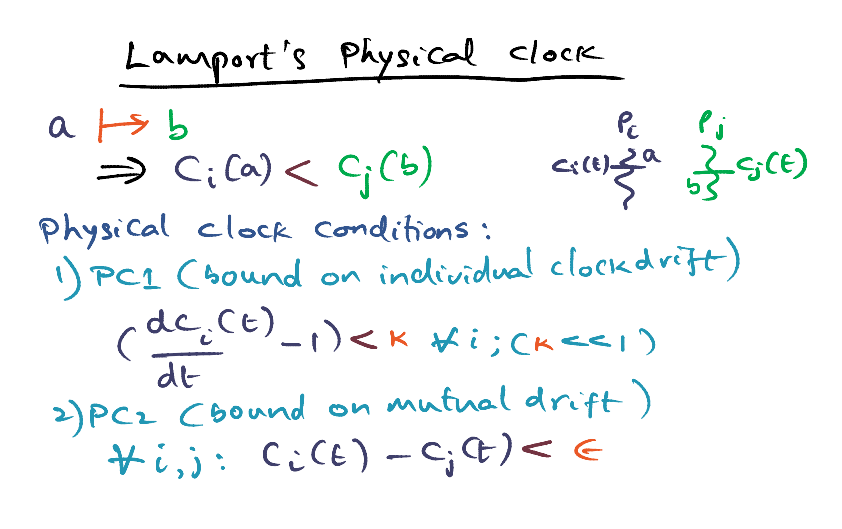 Lamport's Physical Clock
a ↦ b
⇒ Ci(a) < Cj(b)
Pi Pj
Ci(t) a b Cj(t)
Physical clock conditions:
1) PC1 (bound on individual clock drift)
(dCi(t)/dt - 1) < K ∀i; (K << 1)
2) PC2 (bound on mutual drift)
∀i,j: Ci(t) - Cj(t) < ϵ